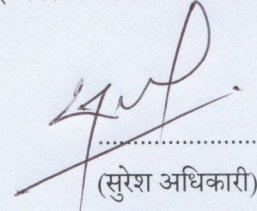 (सुरेश अधिकारी)